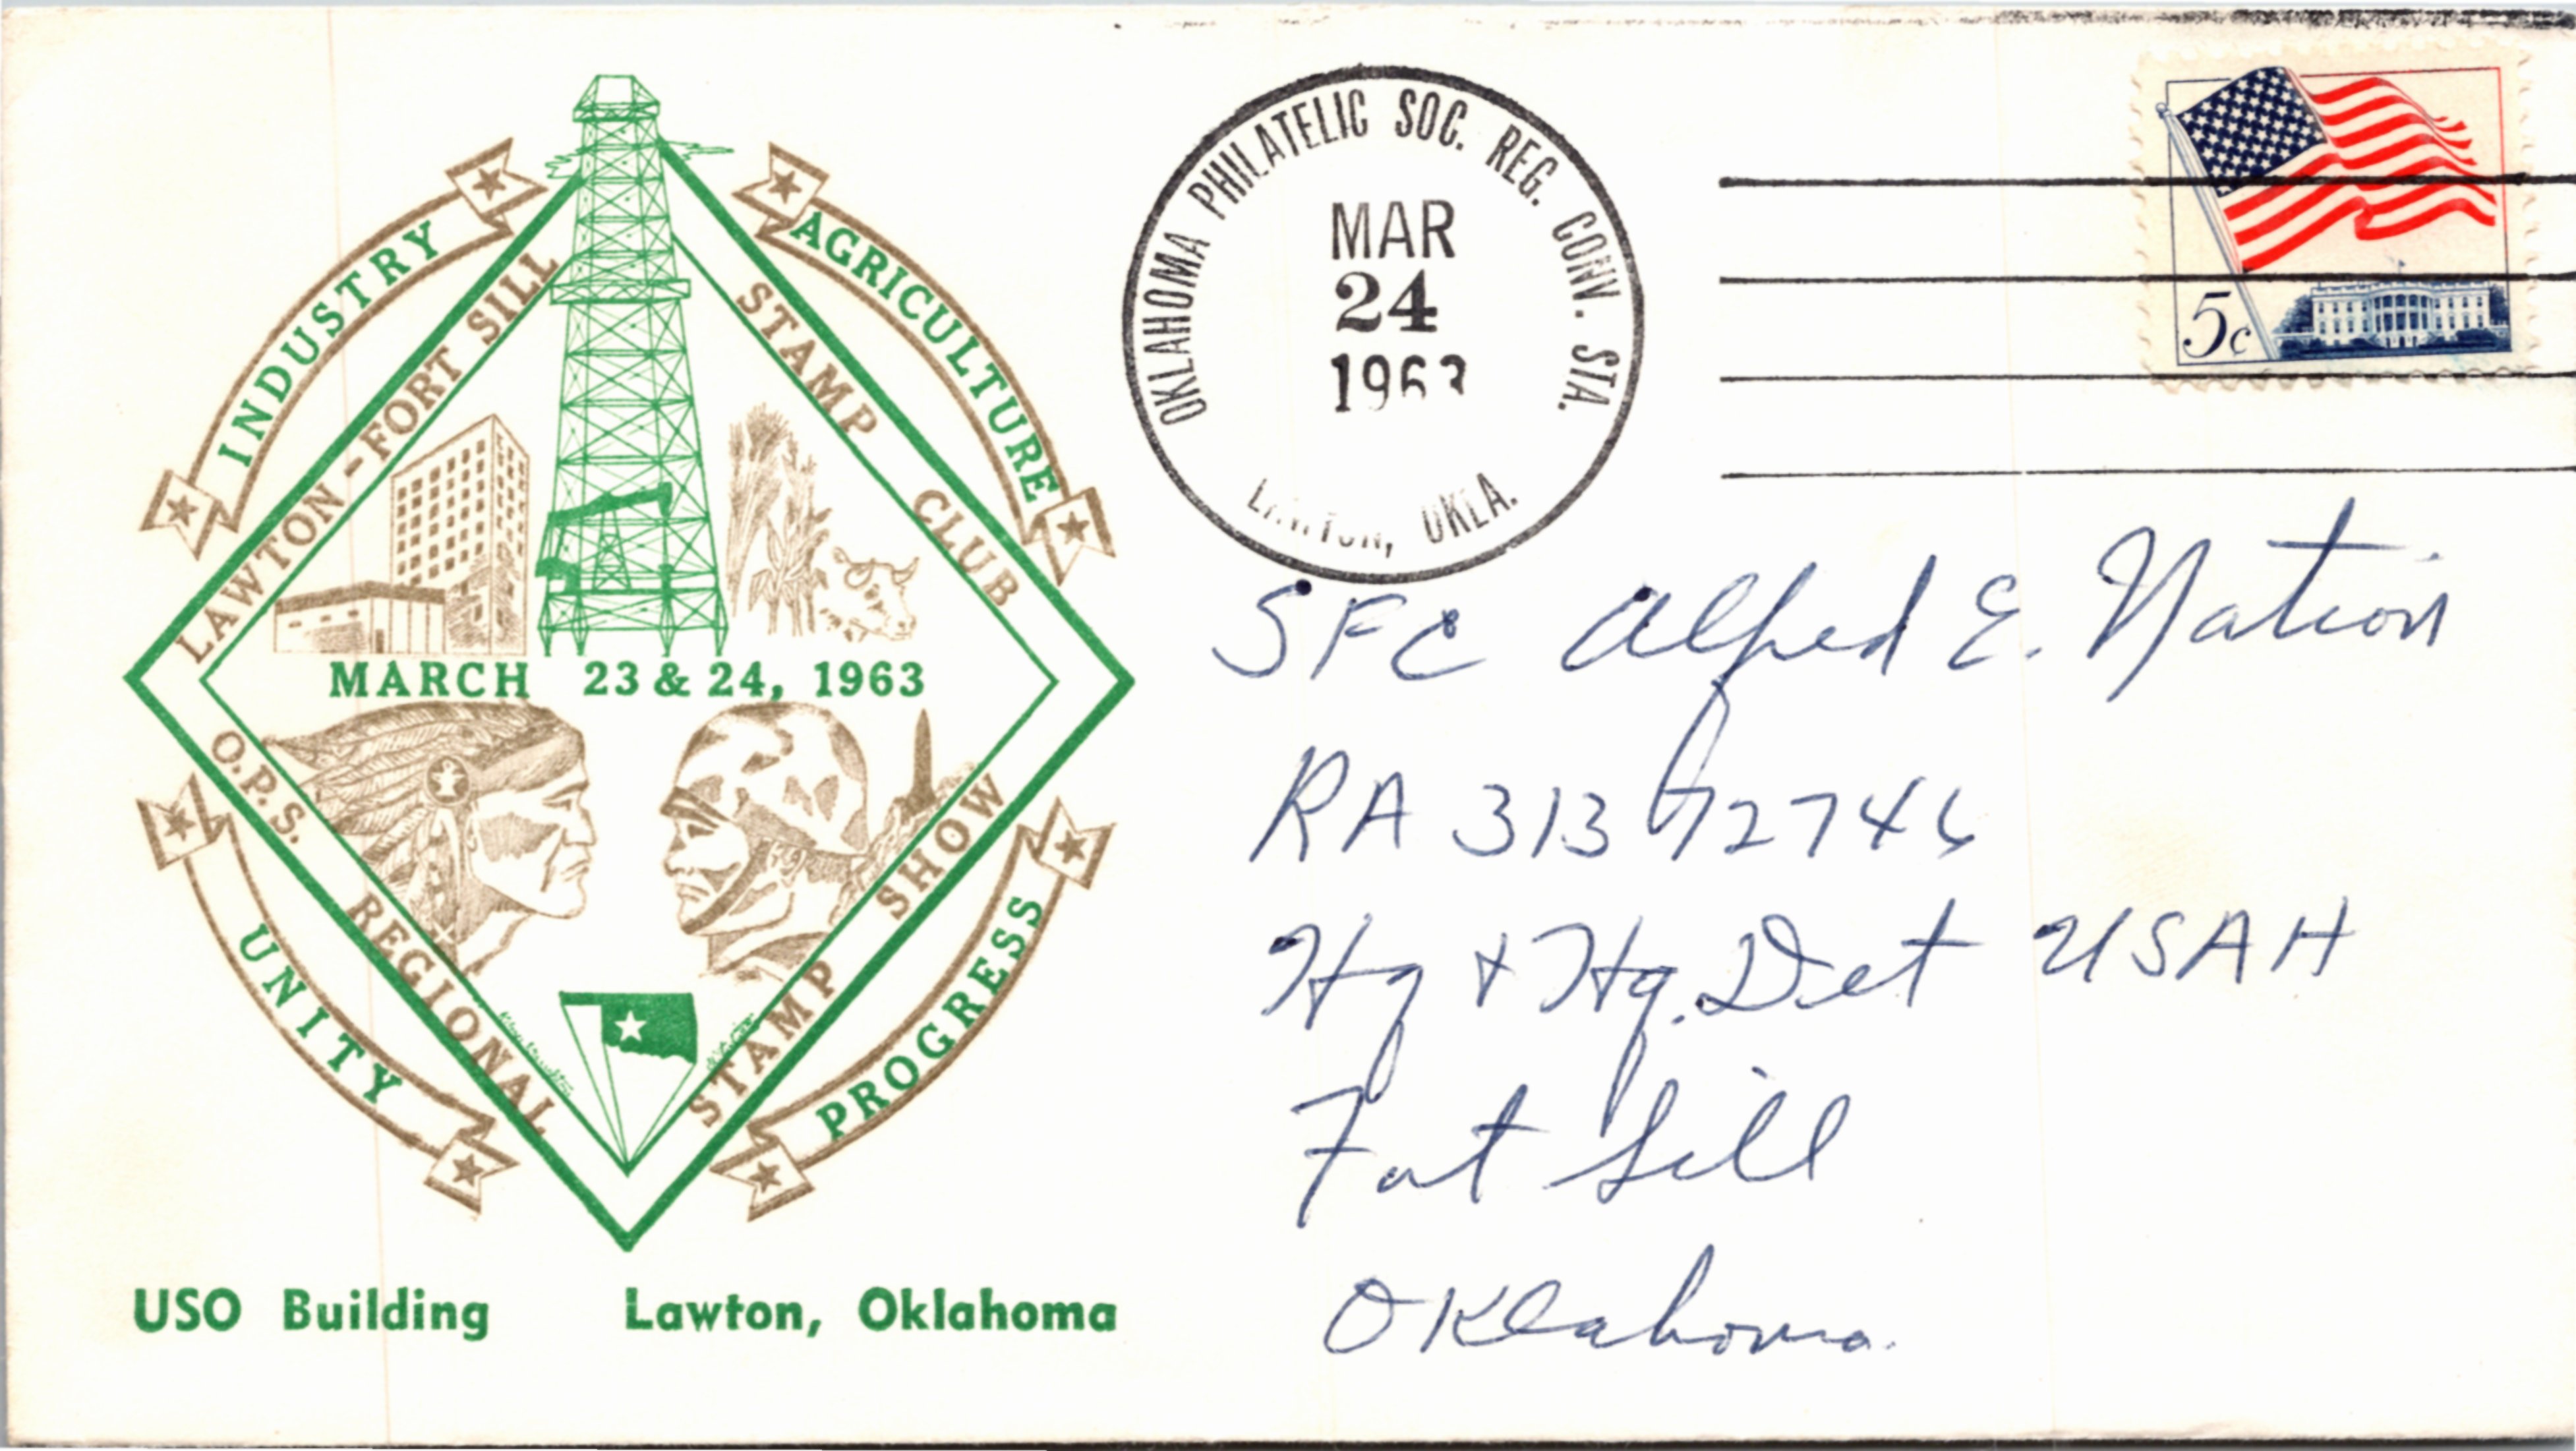 INDUSTRY
AGRICULTURE
LAWTON-FORT SILL
STAMP CLUB
MARCH 23 & 24, 1963
O.P.S. REGIONAL
STAMP SHOW
UNITY
PROGRESS
USO Building Lawton, Oklahoma
OKLAHOMA PHILATELIC SOC. REG. CONV. STA.
MAR
24
1963
LAWTON, OKLA.
5c
SFC Alfred E. Nation
RA 31372746
Hq & Hq. Det USAH
Fort Sill
Oklahoma.